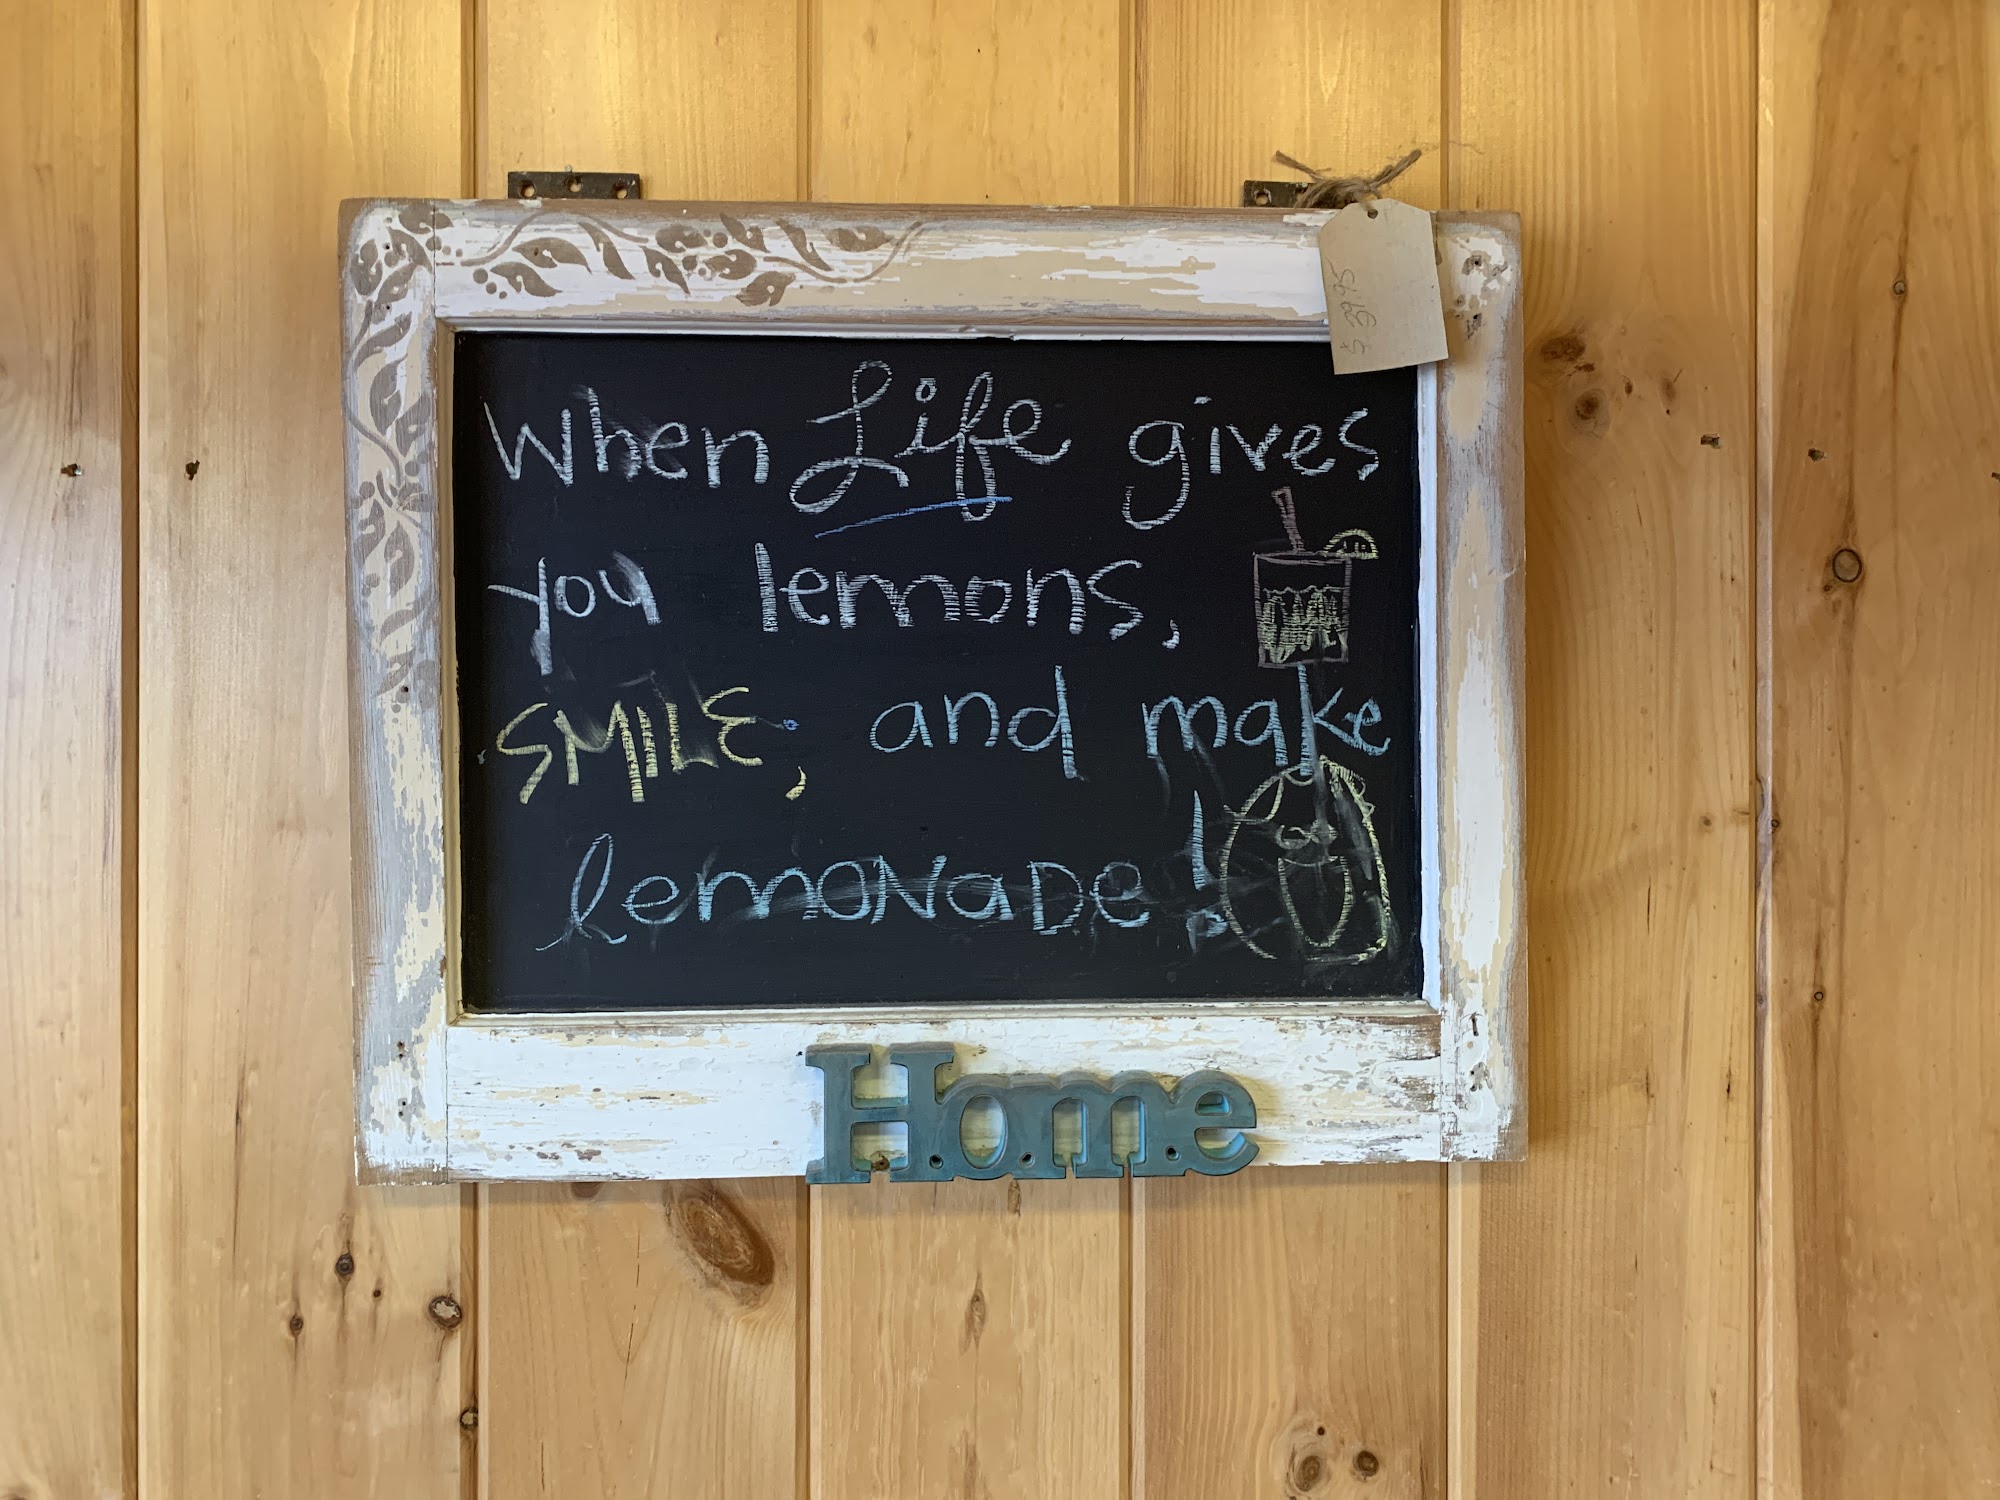 $ 39.95
When Life gives
you lemons,
SMILE, and make
lemoNaDe!
Home